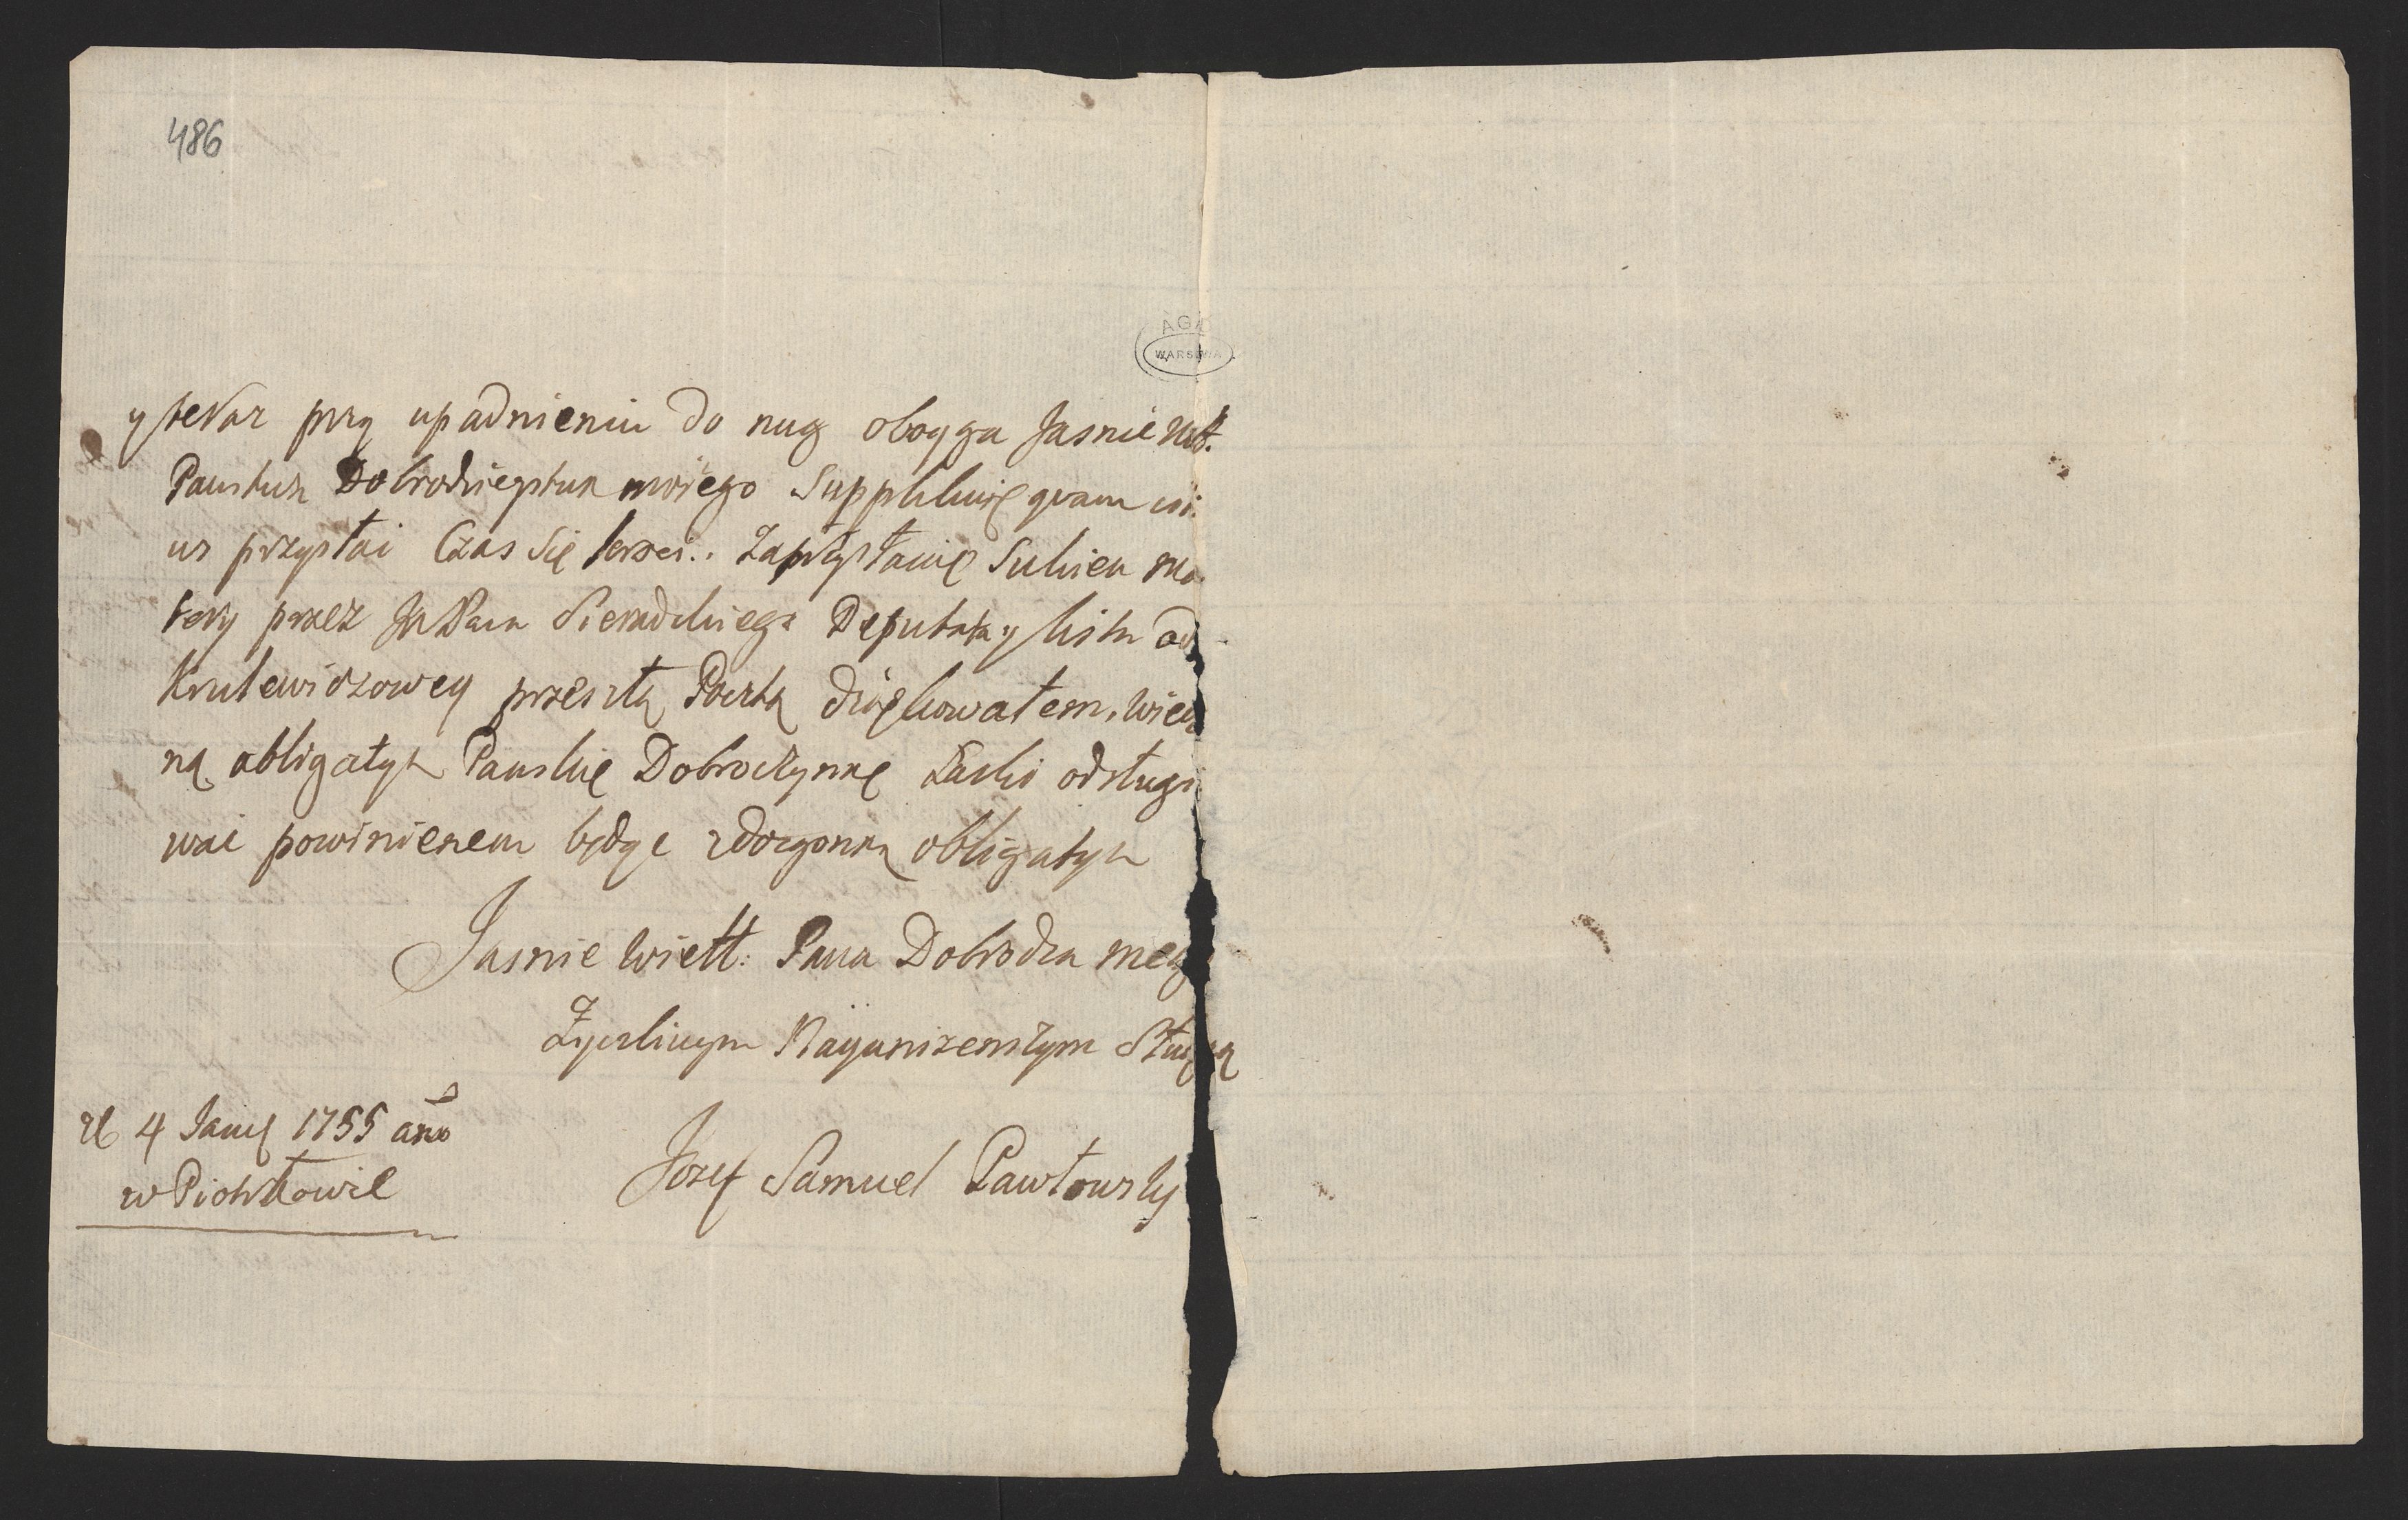 486
AGAD
WARSZAWA
y teraz przy upadnieniu do nug oboyga Jasnie Wt.
Panstwa Dobrodzieystwa moiego Supplikuię qvam ci:
us przysłai Czas się Za przysłanie Sukien ma
tery przez Sieradzkiego Deputata y listu od
Krulewiczowey przeszłą Pocztą dziękowałem, wiecz
ną obligatyą Panskie Dobroczynne Łaski odsługi
wai powinienem będąc zdozgonną obligatyą
Jasnie Wielt: Pana Dobrodza mego
Zyczliwym Nayunizenszym Sługą
Jozef Samuel Pawłowsky
D 4 Janų 1755 ano
w Piotrkowie